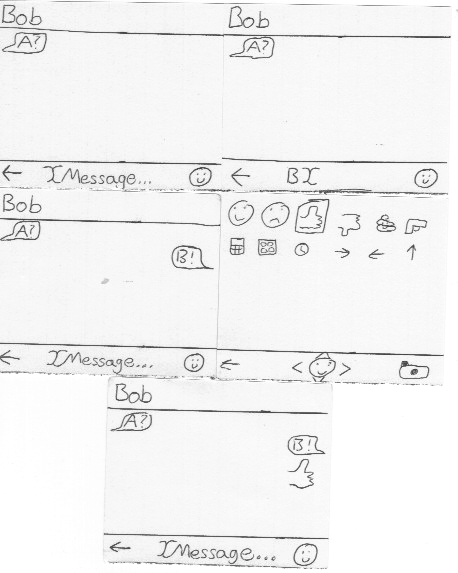 Bob
A?
Message...
Bob
A?
B
Bob
A?
B!
Message...
Bob
A?
B!
Message...